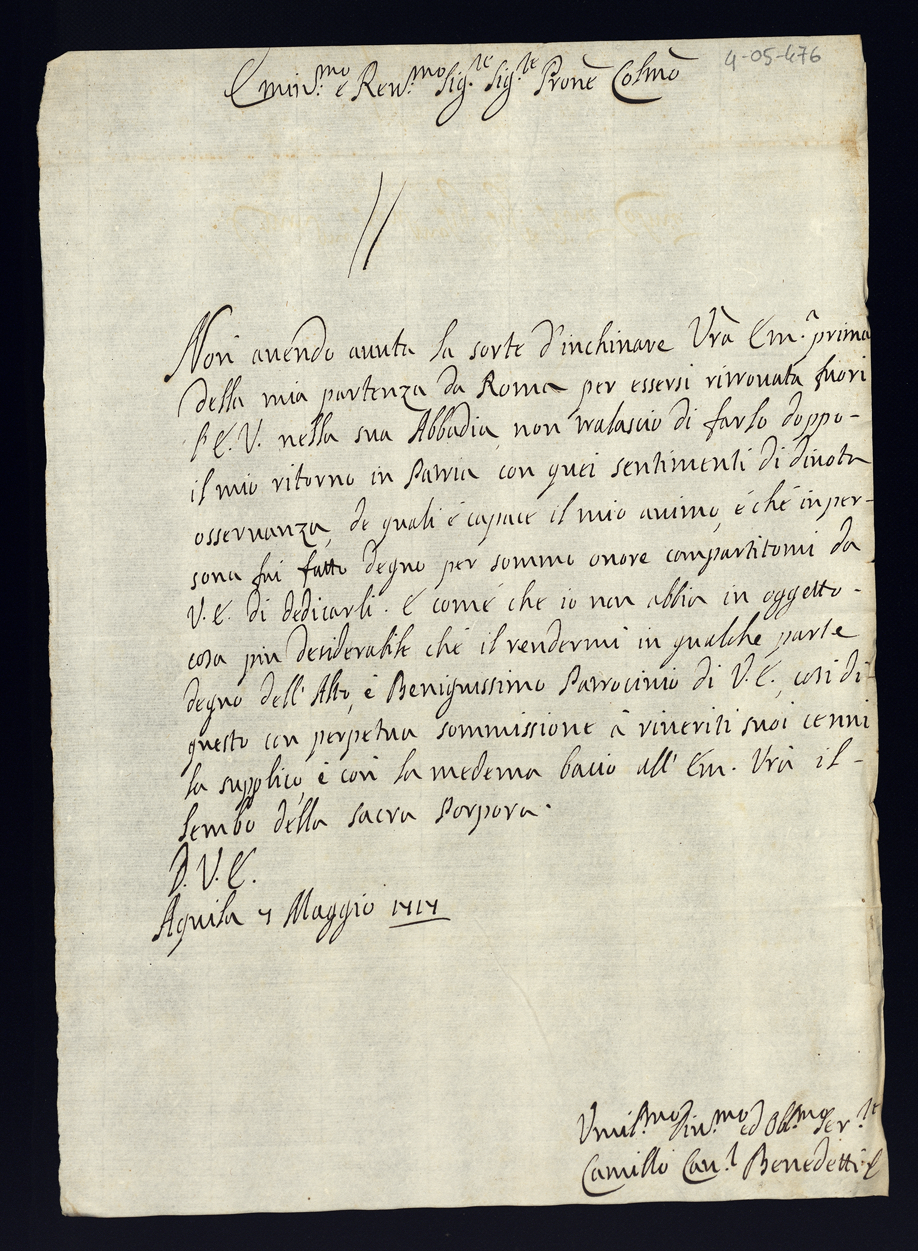 4-05-476
Emin.mo e Rev.mo Sig.re Sig.re Pron̄e Colm̄o
Non auendo auuta la sorte d'inchinare Vr̄a Em.a prima
della mia partenza da Roma per essersi ritrouata fuori
l'E.V. nella sua Abbadia, non tralascio di farlo doppo-
il mio ritorno in Patria con quei sentimenti di diuota
osseruanza, de quali è capace il mio animo, è chè in per-
sona fui fatto degno per sommo onore compartitomi da
V.E. di dedicarli. E comè che io non abbia in oggetto-
cosa piu desiderabile chè il rendermi in qualche parte
degno dell'Alto, è Benignissimo Patrocinio di V.E., così di
questo con perpetua sommissione à riueriti suoi cenni
la supplico, è con la medema bacio all'Em. Vr̄a il-
lembo della sacra Porpora.
D. V. E.
Aquila 7 Maggio 1717
Vmil.mo Diu.mo ed Obl.mo Ser.re
Camillo Can.l Benedetti